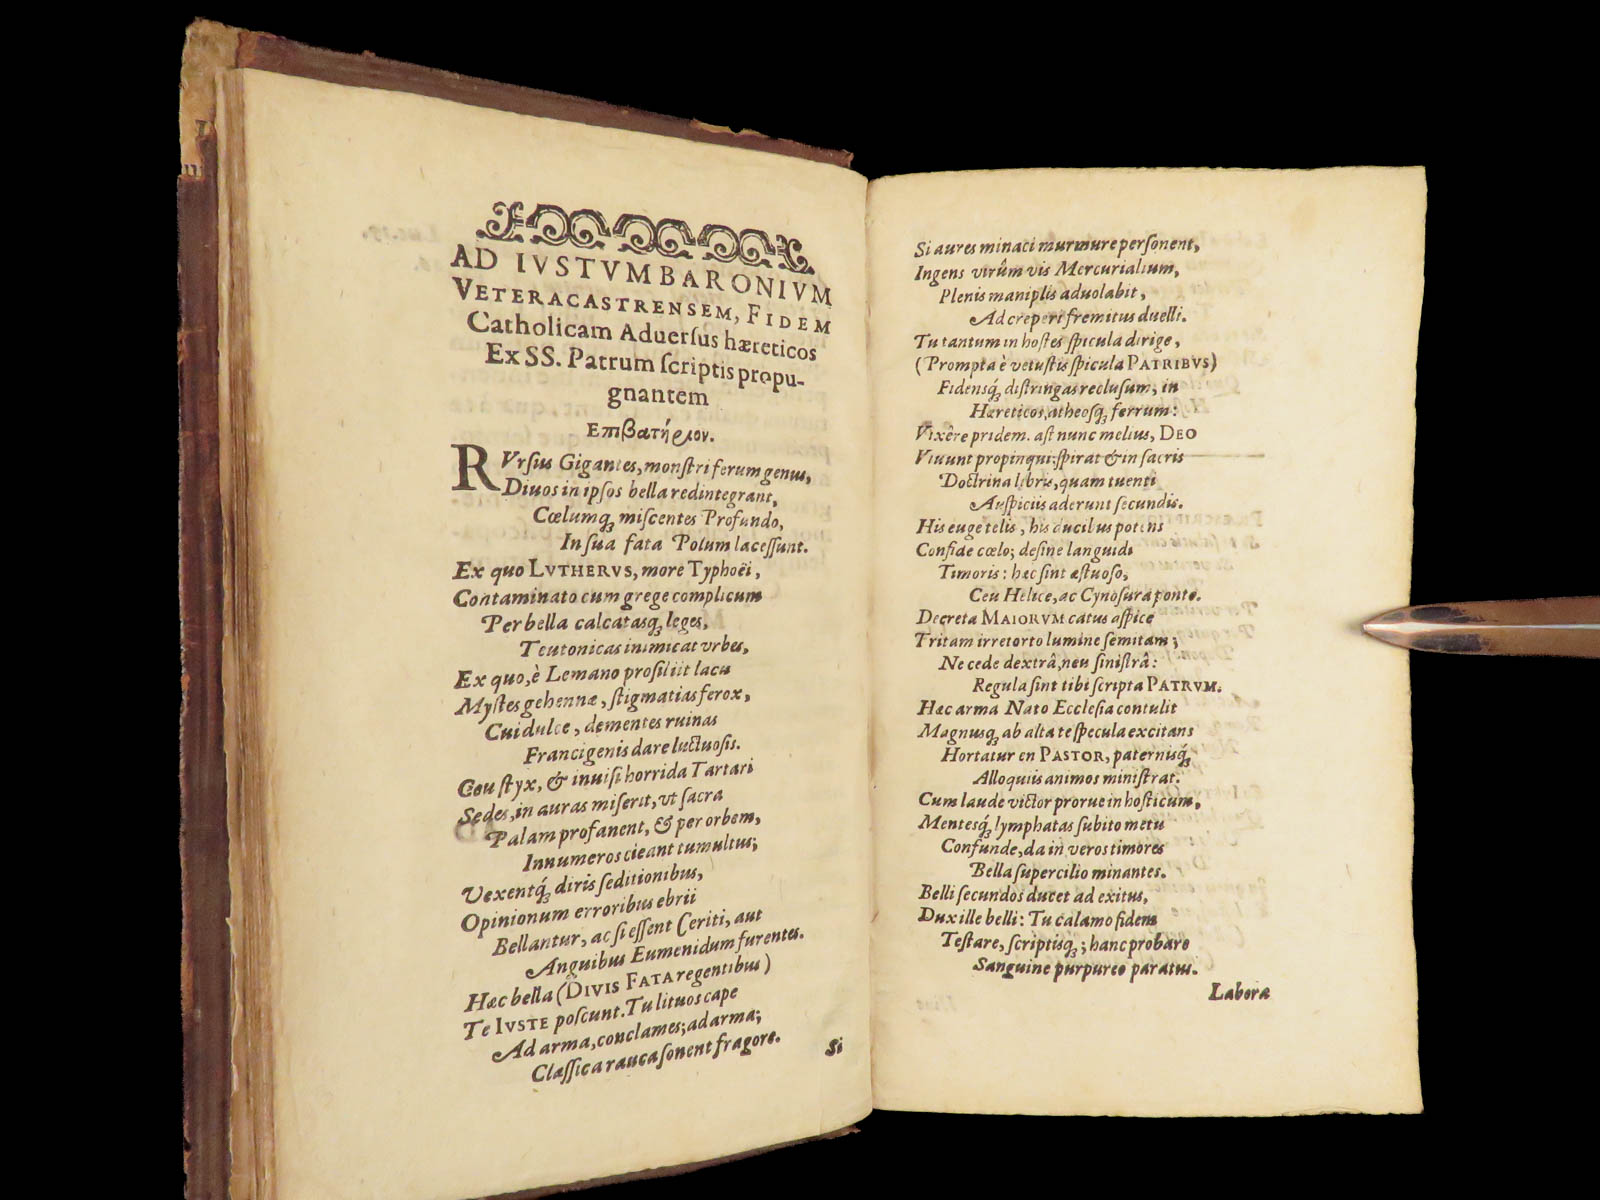 AD IVSTVM BARONIVM
VETERACASTRENSEM, FIDEM
Catholicam Aduerſus hæreticos
Ex SS. Patrum ſcriptis propu-
gnantem
Επιβατήριον.
RVrſus Gigantes, monſtriferum genus,
Diuos in ipſos bella redintegrant,
Cœlumq́ꝫ miſcentes Profundo,
In ſua fata Polum laceſſunt.
Ex quo LVTHERVS, more Typhoëi,
Contaminato cum grege complicum
Per bella calcatasq́ꝫ leges,
Teutonicas inimicat vrbes,
Ex quo, è Lemano proſiliit lacu
Myſtes gehennæ, ſtigmatias ferox,
Cui dulce, dementes ruinas
Francigenis dare luctuoſis.
Ceu ſtyx, & inuiſi horrida Tartari
Sedes, in auras miſerit, vt ſacra
Palam profanent, & per orbem,
Innumeros cieant tumultus;
Vexentq́ꝫ diris ſeditionibus,
Opinionum erroribus ebrii
Bellantur, ac ſi eſſent Ceriti, aut
Anguibus Eumenidum furentes.
Hæc bella (DIVIS FATA regentibus)
Te IVSTE poſcunt. Tu lituos cape
Ad arma, conclames; ad arma;
Claſſica rauca ſonent fragore.
Si
Si aures minaci murmure perſonent,
Ingens virûm vis Mercurialium,
Plenis maniplis aduolabit,
Ad creperi fremitus duelli.
Tu tantum in hoſtes ſpicula dirige,
(Prompta è vetuſtis ſpicula PATRIBVS)
Fidensq́ꝫ diſtringas recluſum, in
Hæreticos, atheosq́ꝫ ferrum:
Vixêre pridem. aſt nunc melius, DEO
Viuunt propinqui: ſpirat & in ſacris
Doctrina libris, quam tuenti
Auſpiciis aderunt ſecundis.
His euge telis, his ducibus potens
Confide cœlo; deſine languidi
Timoris: hæc ſint æſtuoſo,
Ceu Helice, ac Cynoſura ponto.
Decreta MAIORVM catus aſpice
Tritam irretorto lumine ſemitam;
Ne cede dextrâ, neu ſiniſtrâ:
Regula ſint tibi ſcripta PATRVM.
Hæc arma Nato Eccleſia contulit
Magnusq́ꝫ ab alta te ſpecula excitans
Hortatur en PASTOR, paternisq́ꝫ
Alloquiis animos miniſtrat.
Cum laude victor prorue in hoſticum,
Mentesq́ꝫ lymphatas ſubito metu
Confunde, da in veros timores
Bella ſupercilio minantes.
Belli ſecundos ducet ad exitus,
Dux ille belli: Tu calamo fidem
Teſtare, ſcriptisq́ꝫ; hanc probare
Sanguine purpureo paratus.
Labora